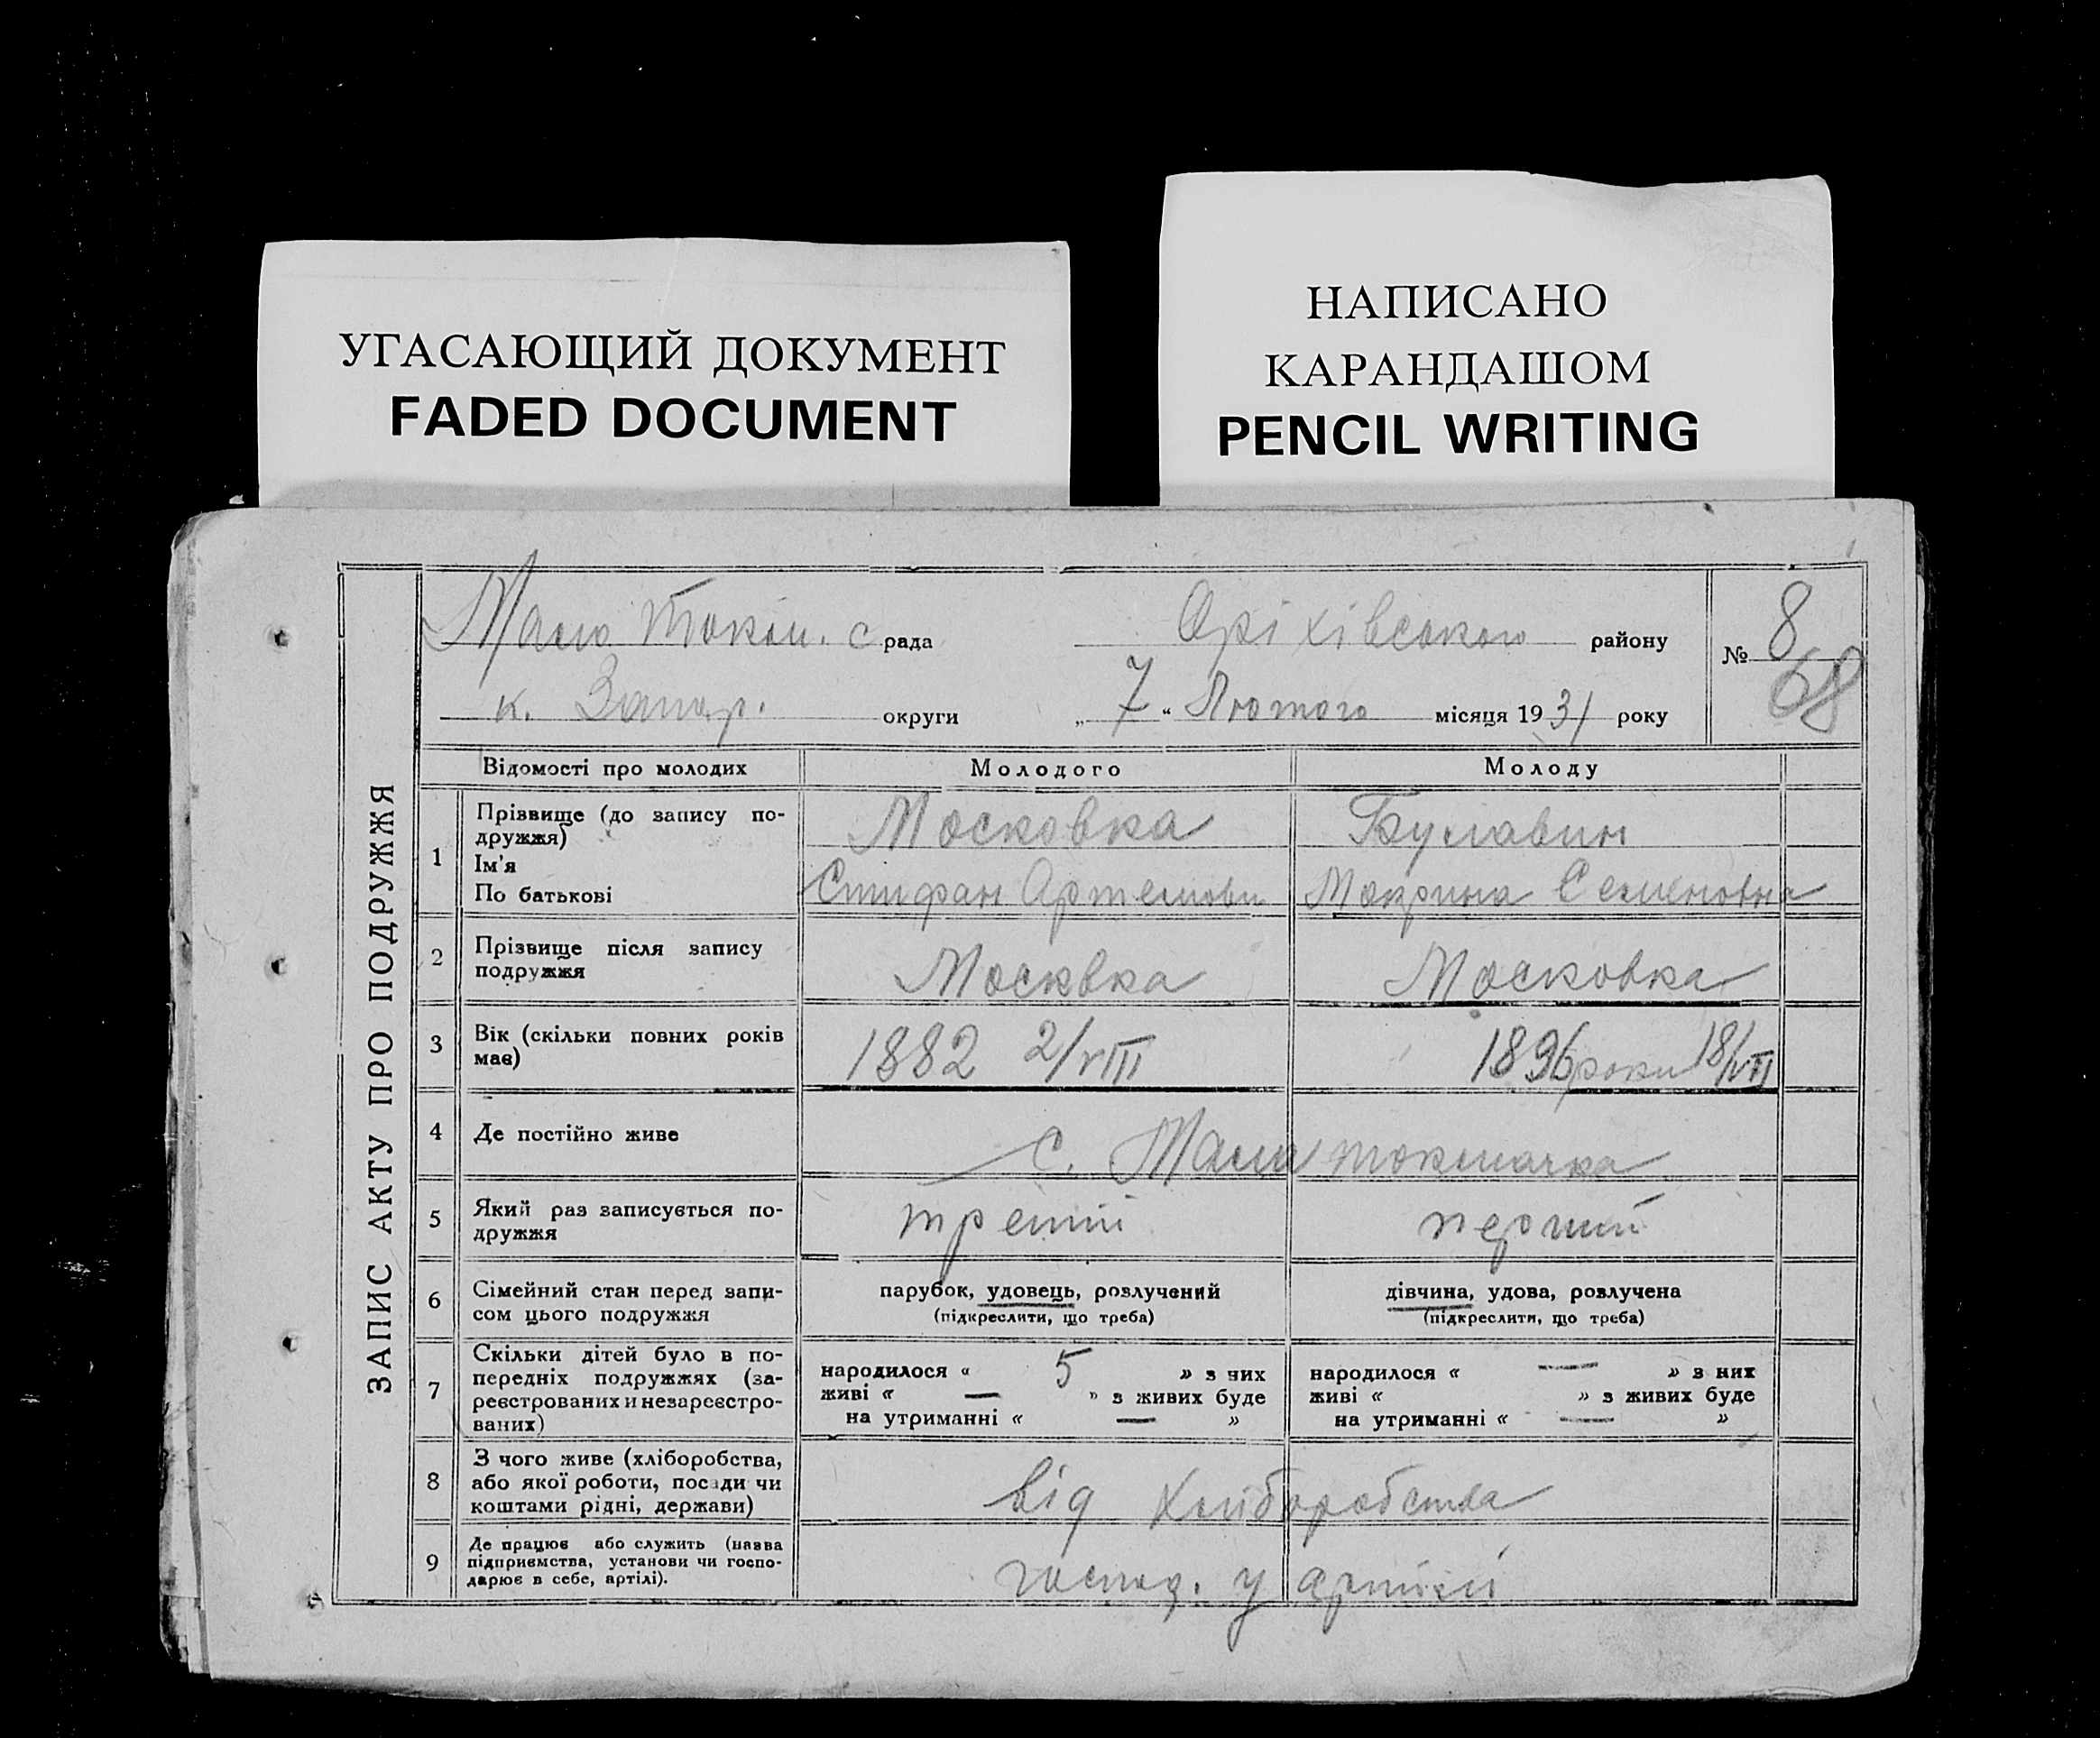 УГАСАЮЩИЙ ДОКУМЕНТ
FADED DOCUMENT
НАПИСАНО
КАРАНДАШОМ
PENCIL WRITING
ЗАПИС АКТУ ПРО ПОДРУЖЖЯ
Мало Токм. с рада Оріхівського району
№ 8
68
к. Запор. округи „ 7 “ Лютого місяця 1931 року
Відомості про молодих Молодого Молоду
1 Прізвище (до запису по-
дружжя)
Московка Булавин
Ім'я
По батькові Стифан Артемови Мокрина Семеновна
2 Прізвище після запису
подружжя
Москвка Московка
3 Вік (скільки повних років
має)
1882 2/VIII 1896 роки 18/VII
4 Де постійно живе с. Мала токмачка
5 Який раз записується по-
дружжя
третій перший
6 Сімейний стан перед запи-
сом цього подружжя
парубок, удовець, розлучений
(підкреслити, що треба)
дівчина, удова, розлучена
(підкреслити, що треба)
7 Скільки дітей було в по-
передніх подружжях (за-
реєстрованих и незареєстро-
ваних)
народилося « 5 » з них
живі « — » з живих буде
на утриманні « — »
народилося « — » з них
живі « » з живих буде
на утриманні « — »
8 З чого живе (хліборобства,
або якої роботи, посади чи
коштами рідні, держави)
від хліборобства
9 Де працює або служить (назва
підприємства, установи чи госпо-
дарює в себе, артілі).
господ. у артілі